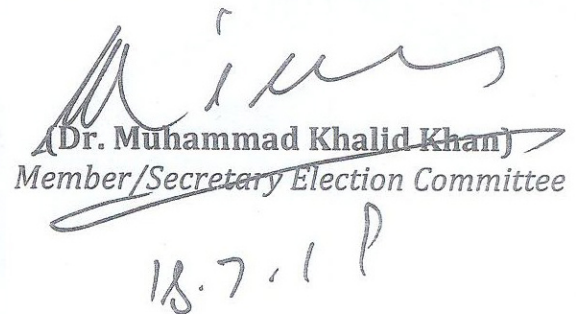 (Dr. Muhammad Khalid Khan)
Member/Secretary Election Committee